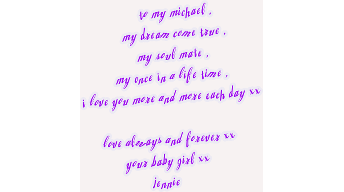 to my michael .
my dream come true .
my soul mate .
my once in a life time .
i love you more and more each day xx
love always and forever xx
your baby girl xx
jennie